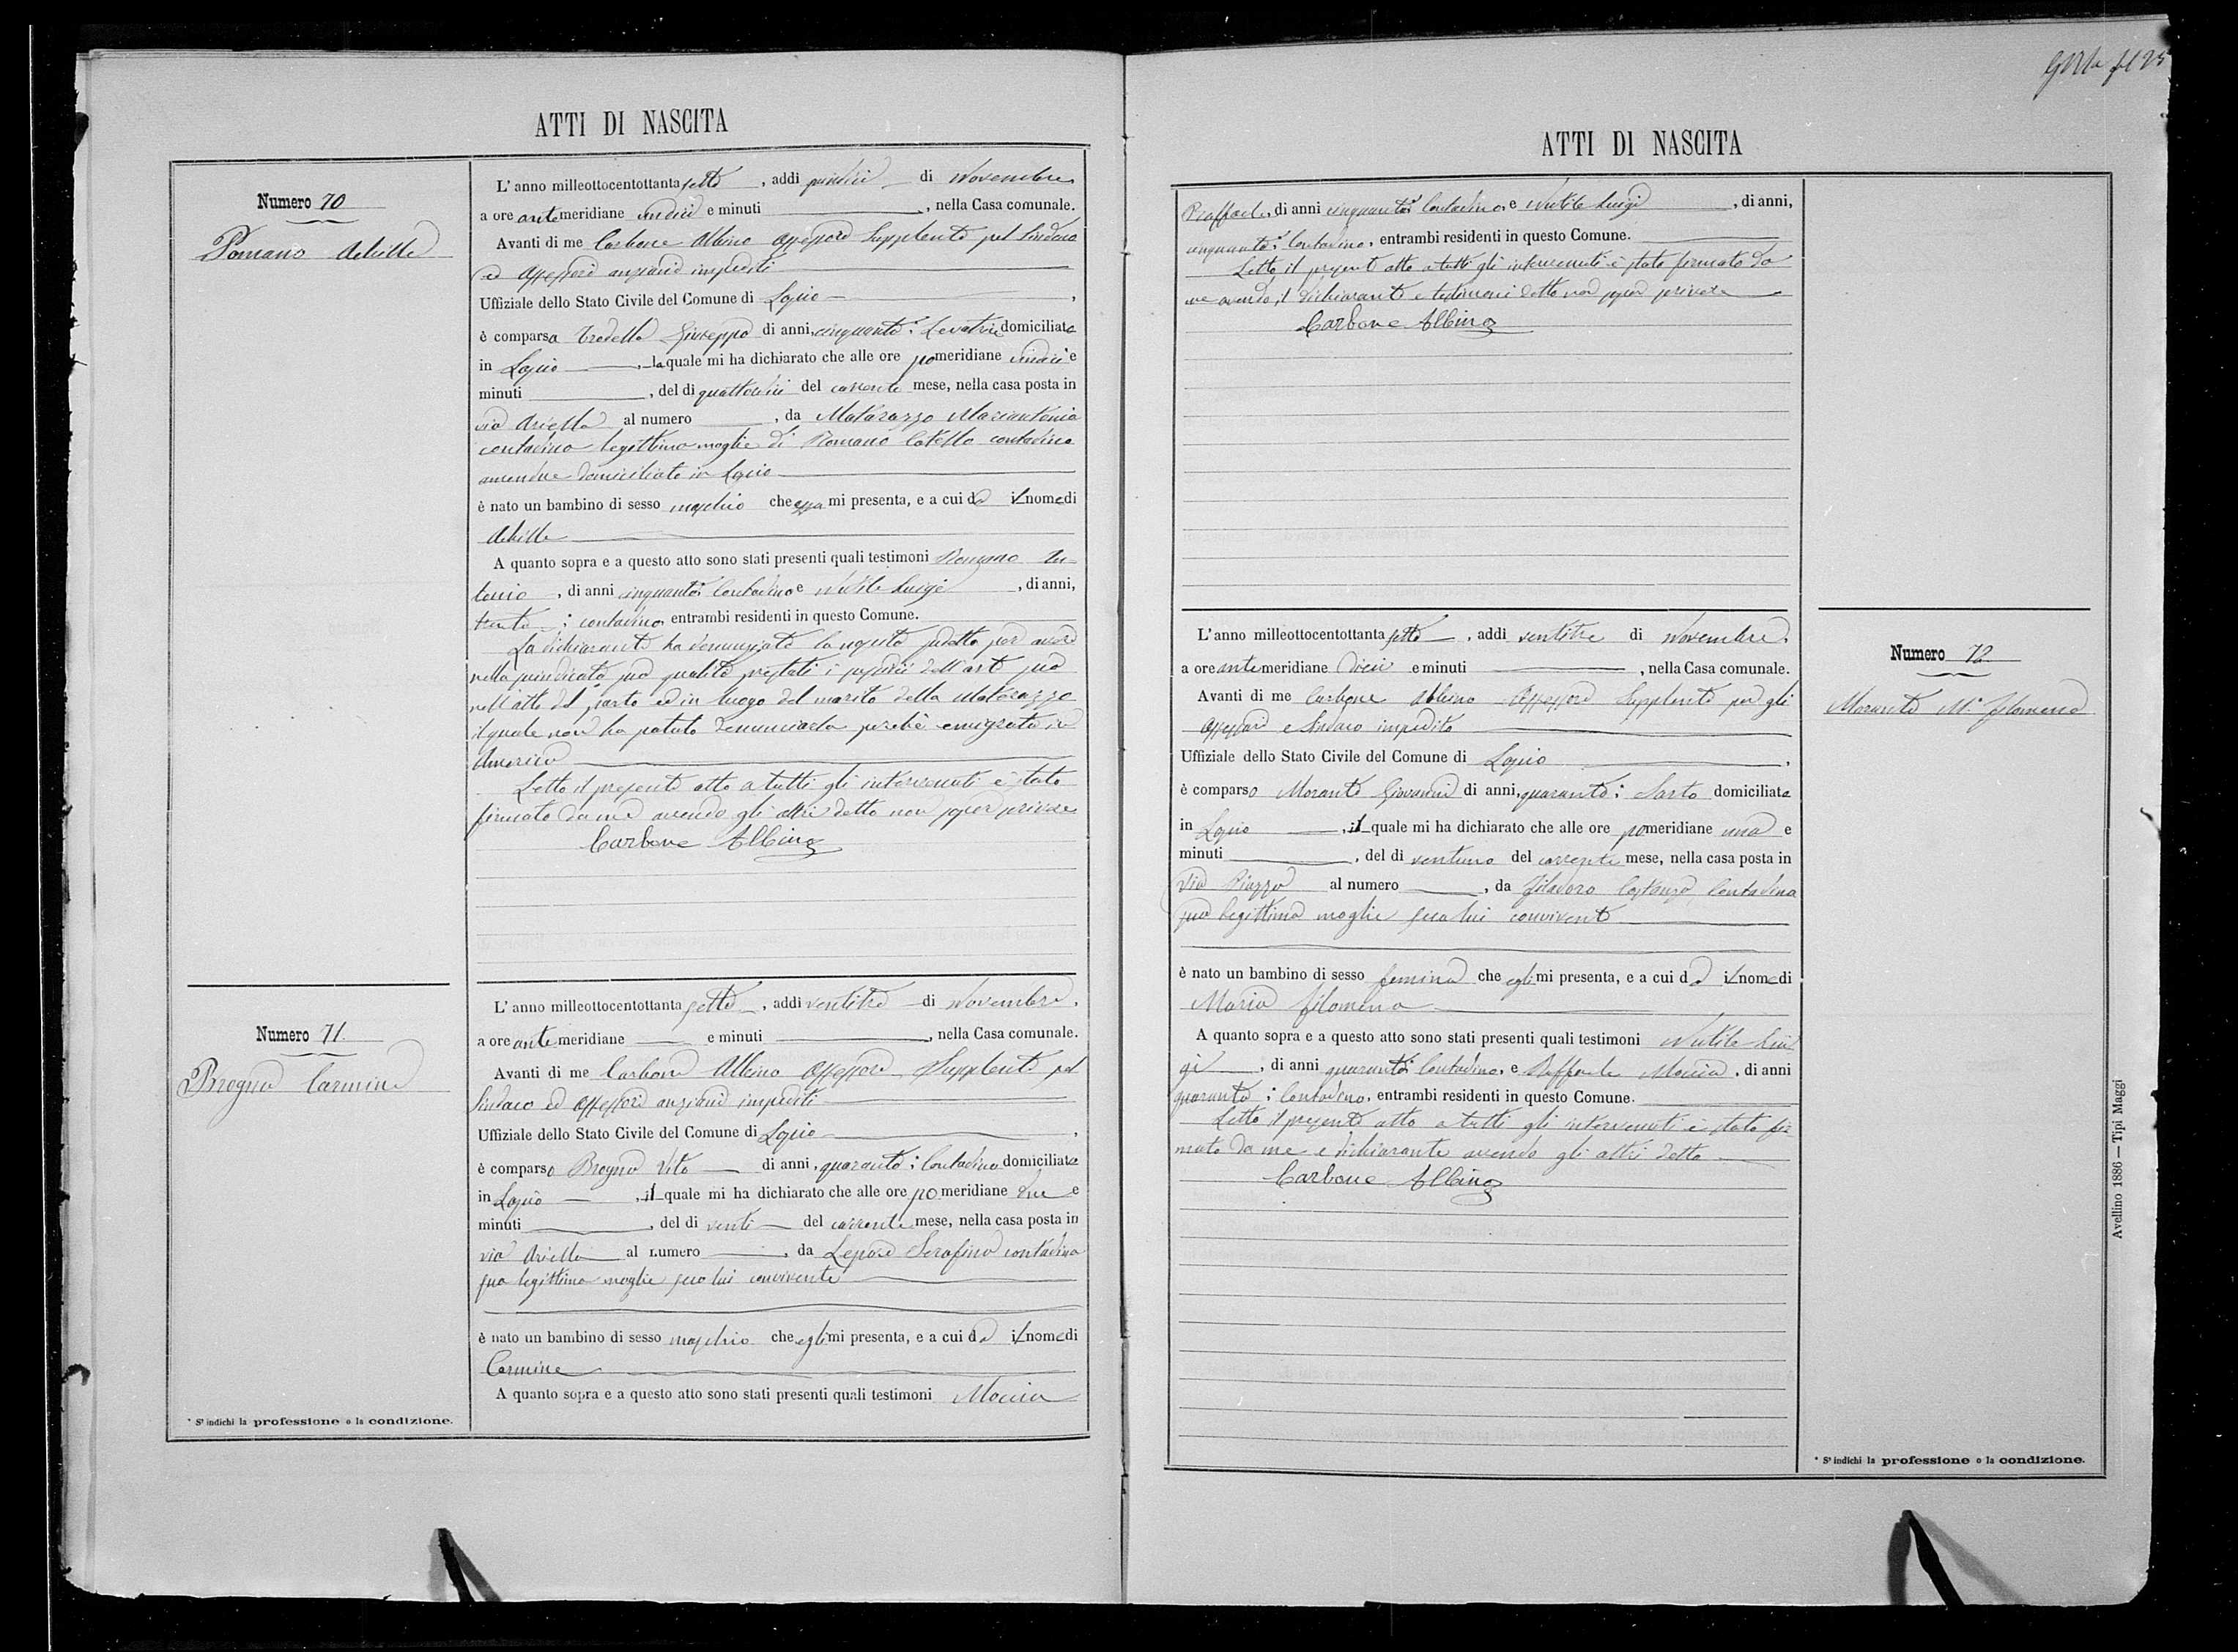 ATTI DI NASCITA
Numero 70
Romano Achille
L'anno milleottocentottanta sette, addi quindici di Novembre
a ore ante meridiane undici e minuti, nella Casa comunale.
Avanti di me Carbone Albino Assessore Supplente pel Sindaco
ed Assessori anziani impediti
Uffiziale dello Stato Civile del Comune di Lapio,
è comparsa Giuseppa di anni, cinquanta; Levatrice domiciliata
in Lapio, la quale mi ha dichiarato che alle ore pomeridiane undici e
minuti, del dì quattordici del corrente mese, nella casa posta in
via Ariella al numero, da Matarazzo Mariantonia
contadina legittima moglie di Romano Catello contadino
amendue domiciliati in Lapio
è nato un bambino di sesso maschio che essa mi presenta, e a cui dà il nome di
Achille
A quanto sopra e a questo atto sono stati presenti quali testimoni Romano An-
tonio, di anni cinquanta; Contadino e Nutile Luigi, di anni,
trenta; contadino, entrambi residenti in questo Comune.
La dichiarante ha denunziato la nascita suddetta per avere
nella sua qualità prestati i dell'arte sua
nell'atto del parto ed in luogo del marito della Matarazzo
il quale non ha potuto denunciarla perchè emigrato in
America
Letto il presente atto a tutti gli intervenuti è stato
firmato da me avendo gli altri detto non saper scrivere
Carbone Albino
Numero 71.
Brogna Carmine
L'anno milleottocentottanta sette, addi ventitre di Novembre.
a ore ante meridiane e minuti, nella Casa comunale.
Avanti di me Carbone Albino Assessore Supplente pel
Sindaco ed Assessori anziani impediti
Uffiziale dello Stato Civile del Comune di Lapio,
è comparso Brogna Vito di anni, quaranta; Contadino domiciliato
in Lapio, il quale mi ha dichiarato che alle ore pomeridiane due e
minuti, del dì venti del corrente mese, nella casa posta in
via Ariella al numero, da Lepore Serafina contadina
sua legittima moglie seco lui convivente
è nato un bambino di sesso maschio che egli mi presenta, e a cui dà il nome di
Carmine
A quanto sopra e a questo atto sono stati presenti quali testimoni Moccia
* S'indichi la professione o la condizione.
ATTI DI NASCITA
Raffaele, di anni cinquanta; Contadino, e Nutile Luigi, di anni,
cinquanta; Contadino, entrambi residenti in questo Comune.
Letto il presente atto a tutti gli intervenuti è stato firmato da
me avendo il dichiarante e testimoni detto non saper scrivere
Carbone Albino
L'anno milleottocentottanta sette, addi ventitre di Novembre.
a ore ante meridiane dieci e minuti, nella Casa comunale.
Avanti di me Carbone Albino Assessore Supplente per gli
Assessori e Sindaco impedito
Uffiziale dello Stato Civile del Comune di Lapio,
è comparso Morante Giovanni di anni, quaranta; Sarto domiciliato
in Lapio, il quale mi ha dichiarato che alle ore pomeridiane una e
minuti, del dì ventuno del corrente mese, nella casa posta in
Via Piazza al numero, da Filadoro Costanza Contadina
sua legittima moglie seco lui convivente
è nato un bambino di sesso femina che egli mi presenta, e a cui dà il nome di
Maria Filomena
A quanto sopra e a questo atto sono stati presenti quali testimoni Nutile Lui
gi, di anni quaranta; Contadino, e Raffaele Moccia, di anni
quaranta; Contadino, entrambi residenti in questo Comune.
Letto il presente atto a tutti gli intervenuti è stato fir
mato da me e dichiarante avendo gli altri detto
Carbone Albino
Numero 72.
Morante Ma. Filomena
* S'indichi la professione o la condizione.
Avellino 1886 — Tipi Maggi